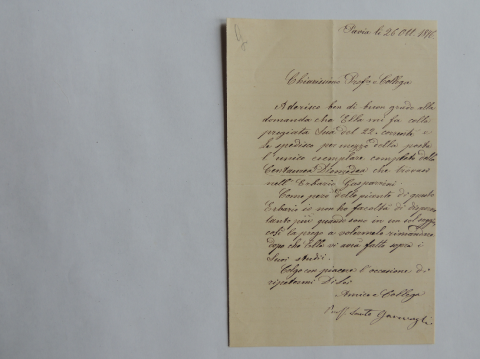 Pavia li 26 Ott. 187
Chiarissimo Prof.e e Collega
Aderisco ben di buon grado alla
domanda che Ella mi fa colla
pregiata Sua del 22. corrente e
Le spedisco per mezzo della posta
l'unico esemplare completo della
Centaurea Diomedea che trovasi
nell' Erbario Gasparrini.
Come però delle piante di questo
Erbario io non ho facoltà di disporre
tanto più quando sono in un sol
così la prego a volermela rimandare
dopo che Ella vi avrà fatto sopra i
Suoi studii.
Colgo con piacere l'occasione di
ripetermi Di Lei
Amico e Collega
Prof. Santo Garovaglio